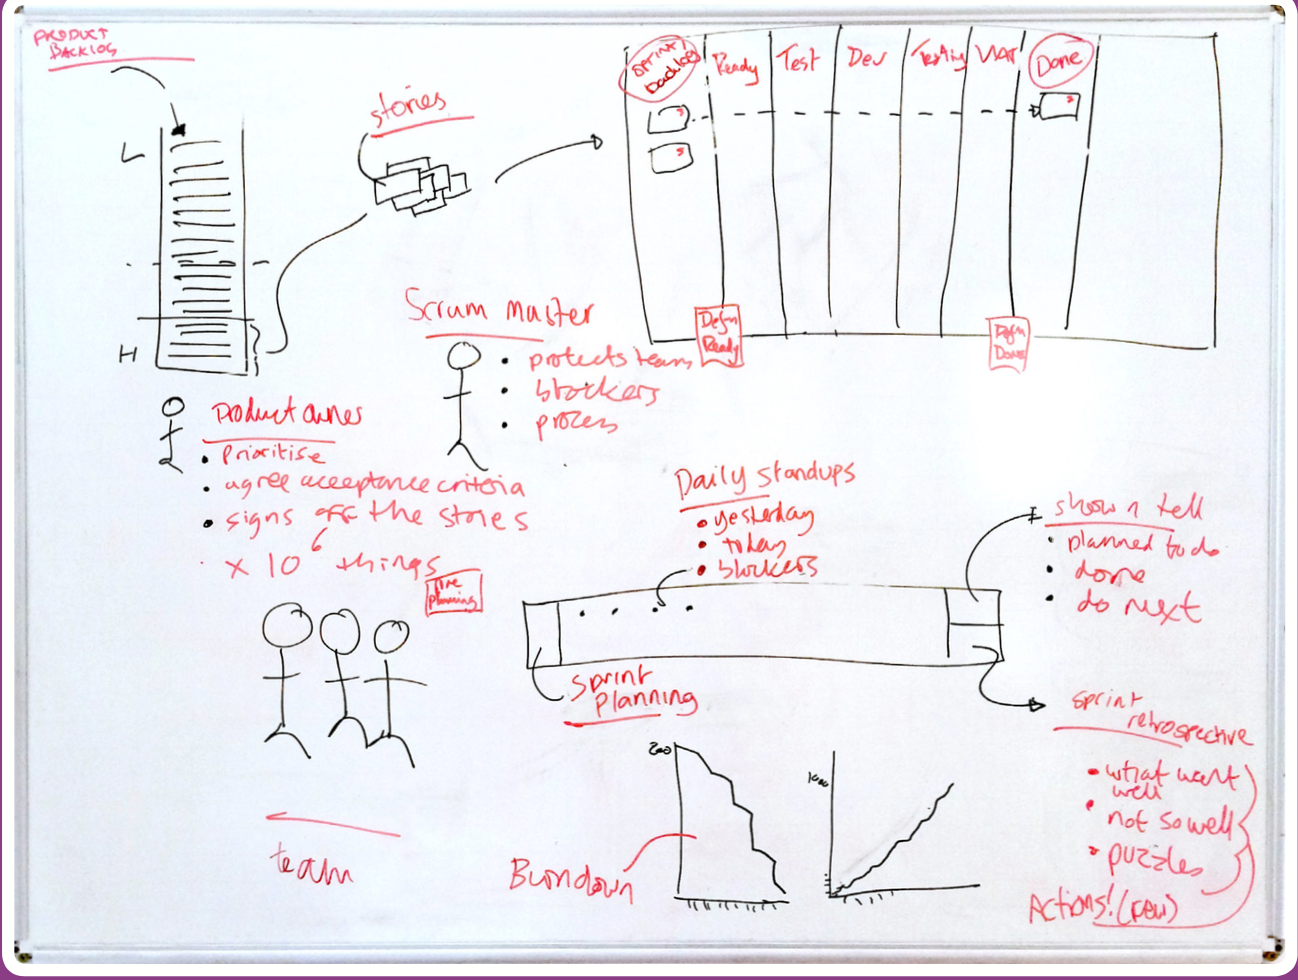 PRODUCT
BACKLOG
stories
L
H
sprint
backlog
Ready
Test
Dev
Testing
UAT
Done
Defn
Ready
Defn
Done
Scrum Master
• protects team
• blockers
• process
Product owner
• Prioritise
• agree acceptance criteria
• signs off the stories
x 10⁶ things
planning
team
Daily standups
• yesterday
• today
• blockers
sprint
planning
show n tell
• planned to do
• done
• do next
sprint
retrospective
• what went
well
• not so well
• puzzles
Actions! (few)
200
Burndown